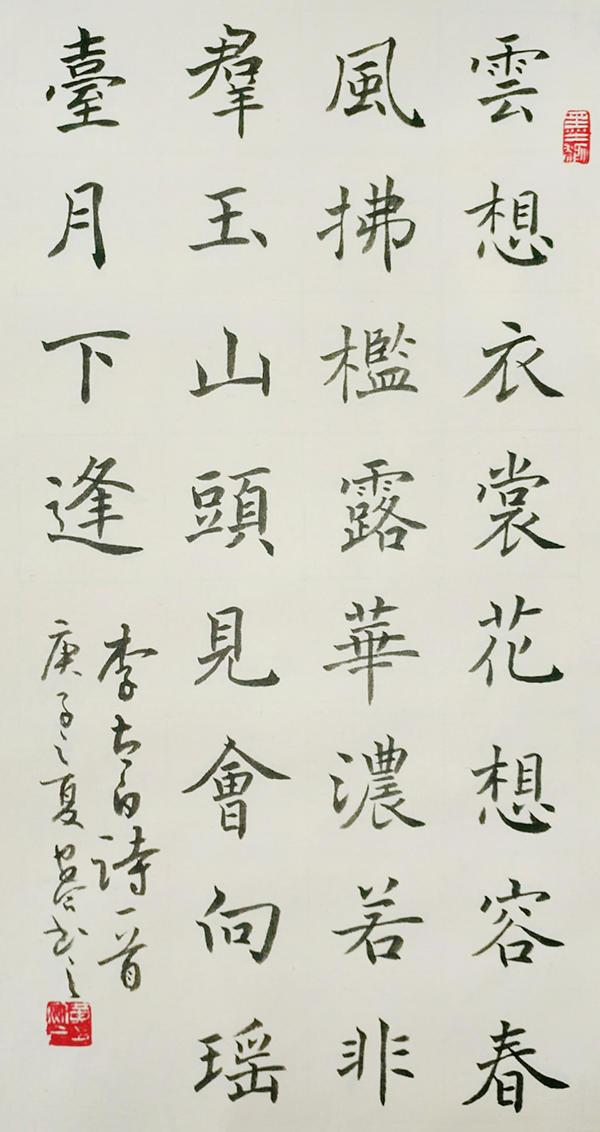 雲想衣裳花想容春
風拂檻露華濃若非
羣玉山頭見會向瑶
臺月下逢
李太白詩一首
庚子之夏書之